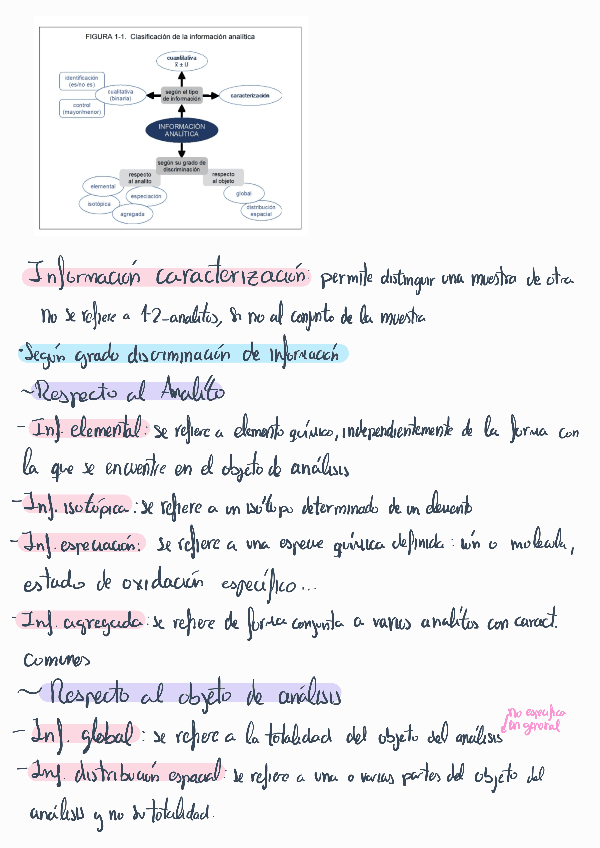 FIGURA 1-1. Clasificación de la información analítica
cuantitativa
x̄ ± U
identificación
(es/no es)
cualitativa
(binaria)
control
(mayor/menor)
según el tipo
de información
caracterización
INFORMACIÓN
ANALÍTICA
según su grado de
discriminación
respecto
al analito
respecto
al objeto
elemental
especiación
isotópica
agregada
global
distribución
espacial
Información caracterización: permite distinguir una muestra de otra
no se refiere a 1-2-analitos, si no al conjunto de la muestra
·Según grado discriminación de información
~Respecto al Analito
- Inf. elemental: se refiere a elemento químico, independientemente de la forma con
la que se encuentre en el objeto de análisis
-Inf. isotópica: se refiere a un isótopo determinado de un elemento
-Inf. especiación: se refiere a una especie química definida: ión o molécula,
estado de oxidación específico...
-Inf. agregada: se refiere de forma conjunta a varios analitos con caract.
comunes
~ Respecto al objeto de análisis
- Inf. global: se refiere a la totalidad del objeto del análisis
no especifica
en general
- Inf. distribución espacial: se refiere a una o varias partes del objeto del
análisis y no su totalidad.